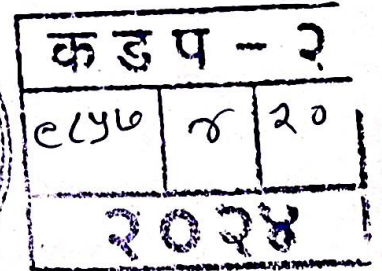 कडप - २
९८५७ ४ २०
२०२४